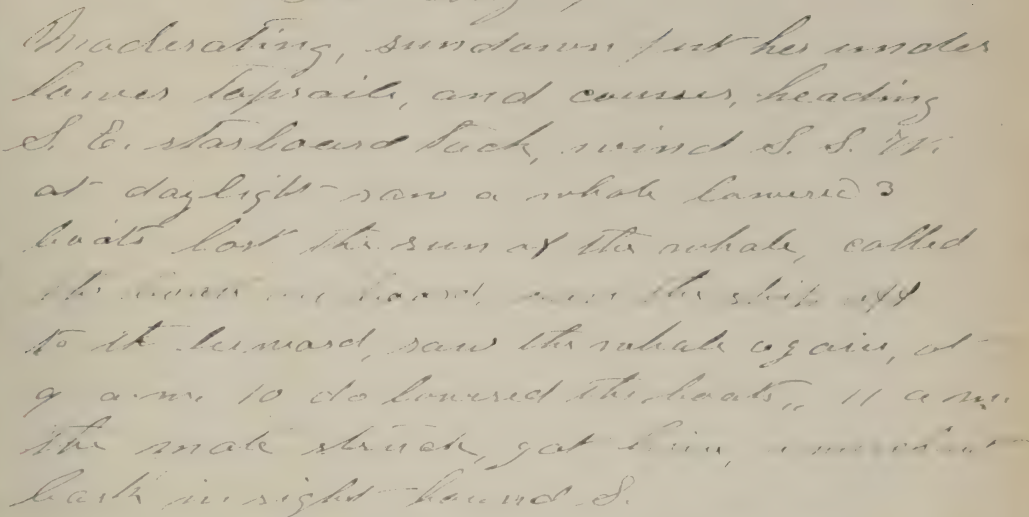 Moderating, sundown put her under
lower topsails, and courses, heading
S. E. starboard tack, wind S. S. W.
at daylight saw a whale lowered 3
boats lost the run of the whale, called
the on board, run the ship off
to the leeward, saw the whale again, at
9 a.m. 10 do lowered the boats,, 11 a m.
the mate struck, got him,
bark in sight bound S.